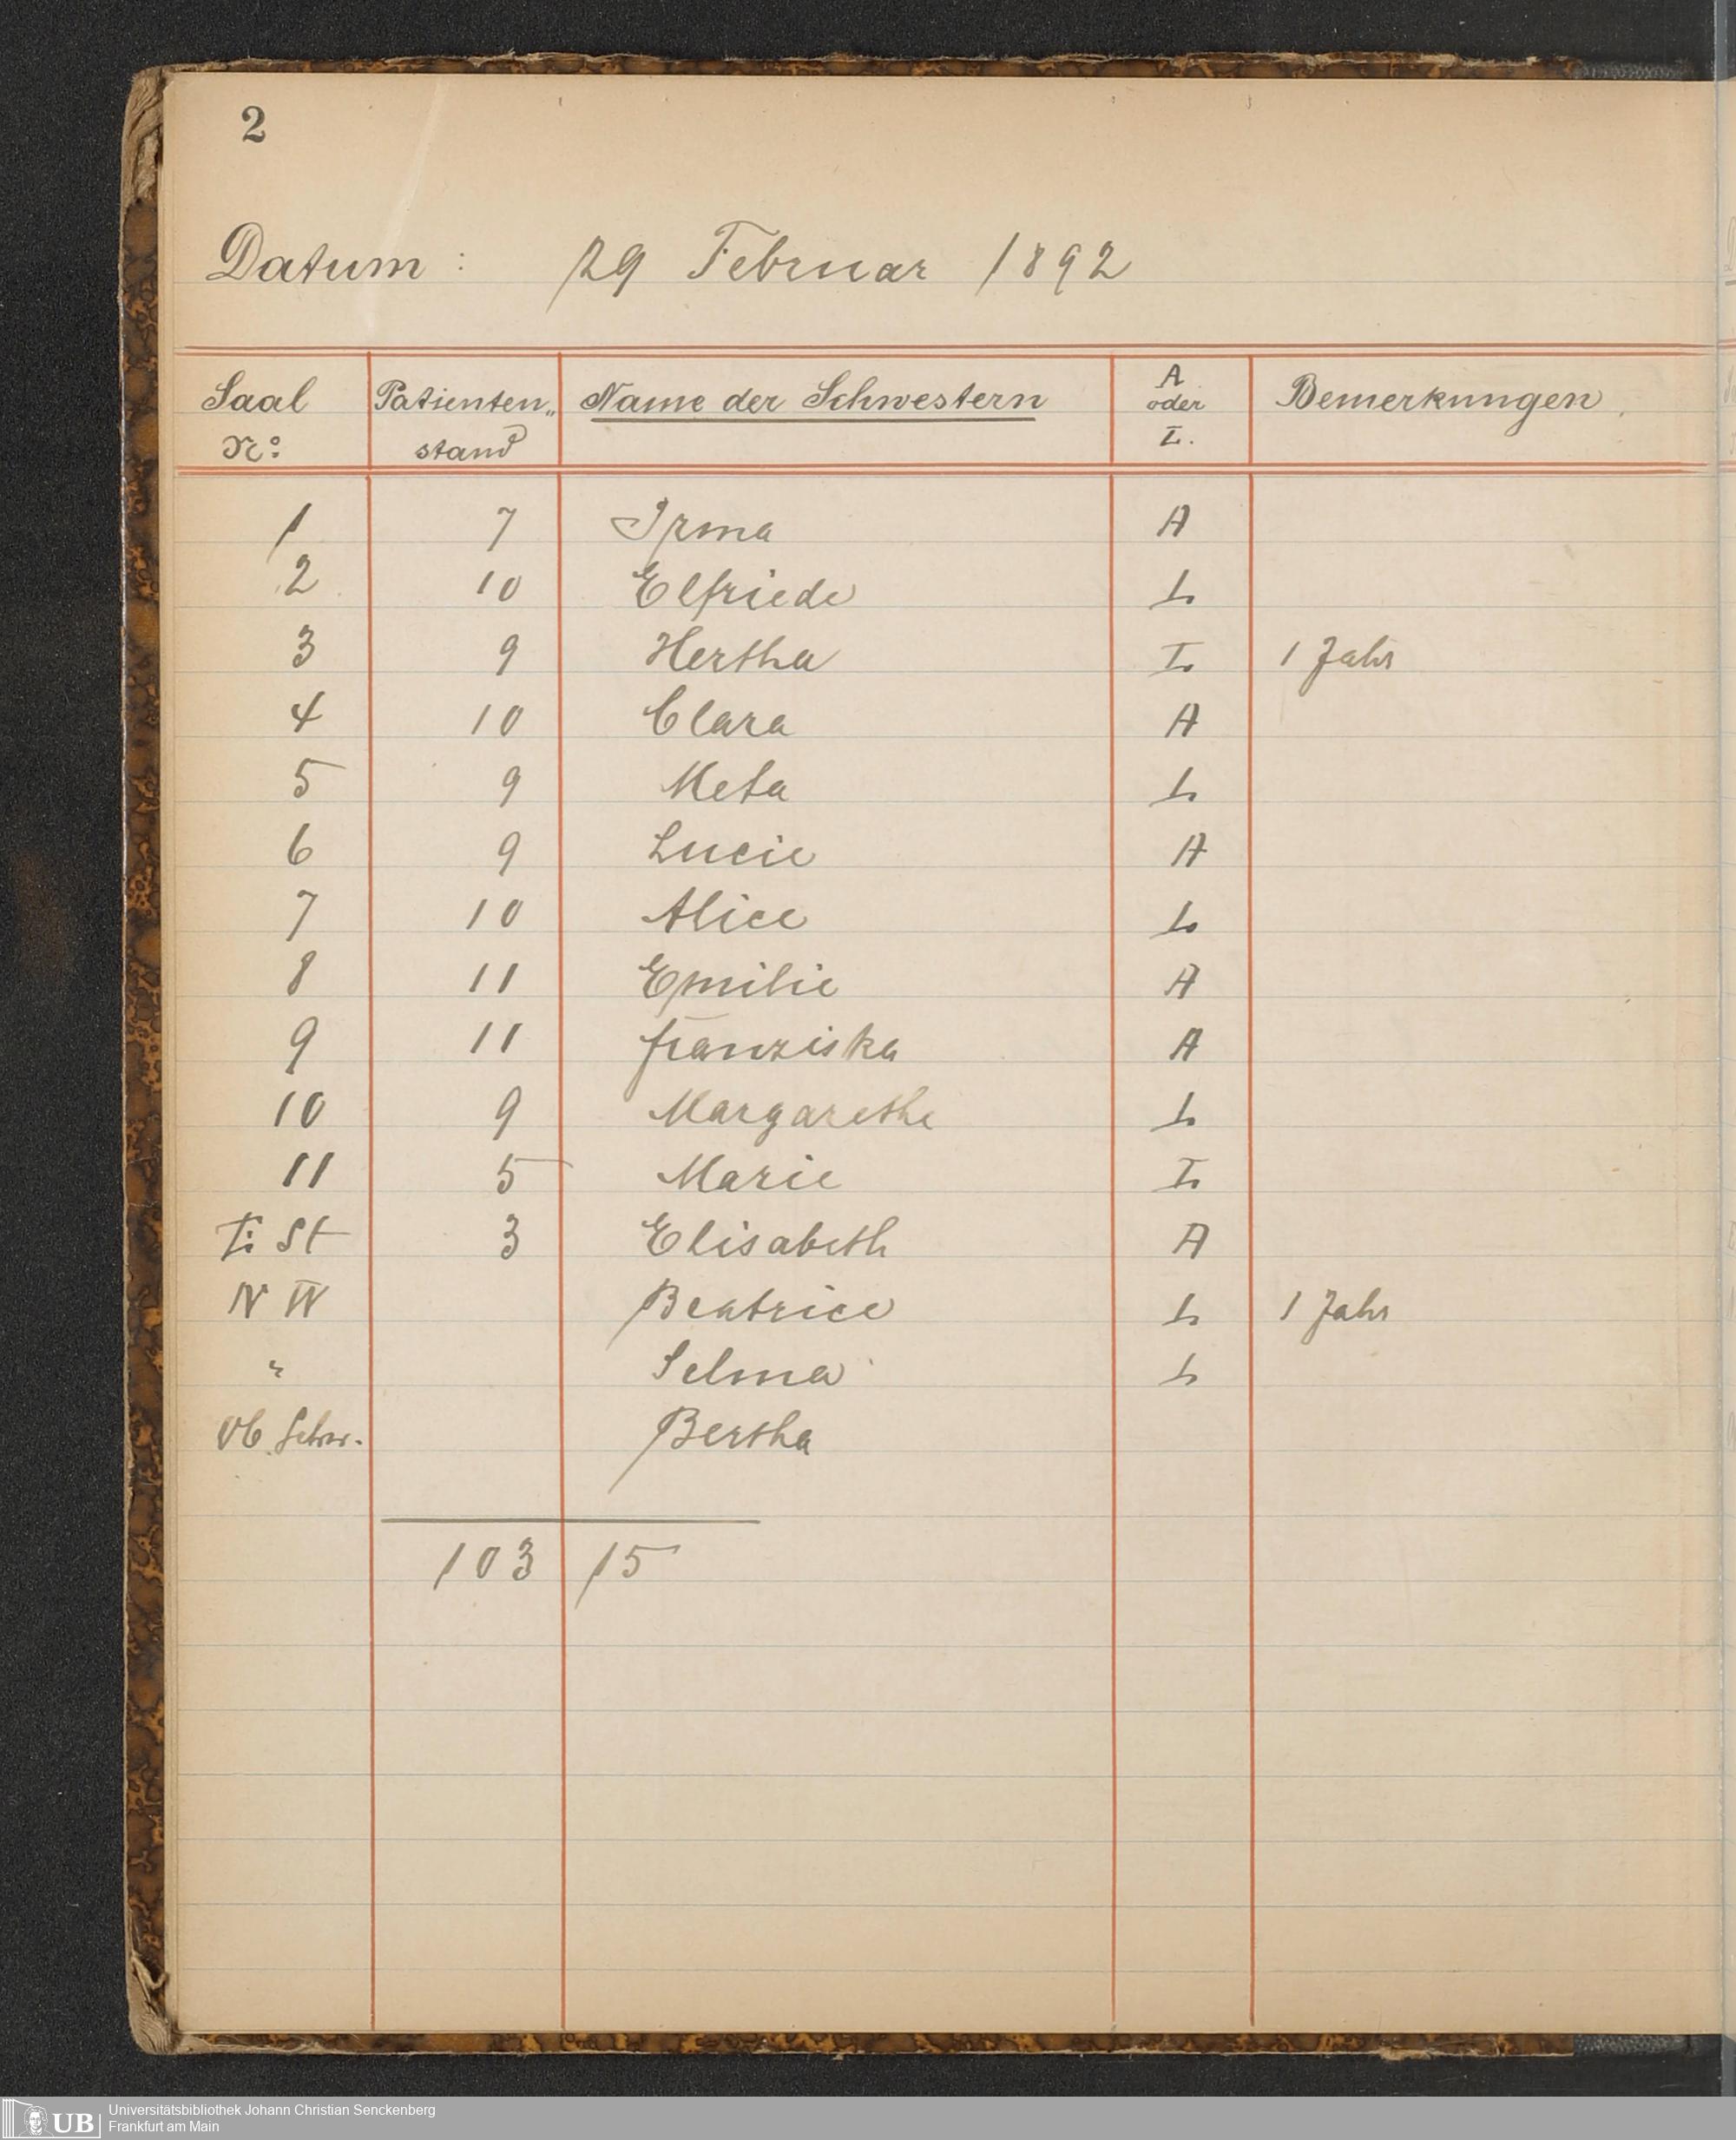 2
Datum : 29 Februar 1892
Saal Patienten„ Name der Schwestern A oder L. Bemerkungen
No: stand
1 7 Irma A
2 10 Elfriede L
3 9 Hertha L 1 Jahr
4 10 Clara A
5 9 Meta L
6 9 Lucie A
7 10 Alice L
8 11 Emilie A
9 11 Franziska A
10 9 Margarethe L
11 5 Marie L
St 3 Elisabeth A
N W Beatrice L 1 Jahr
" Selma L
Ob. Schw. Bertha
103 15
UB Universitätsbibliothek Johann Christian Senckenberg
Frankfurt am Main